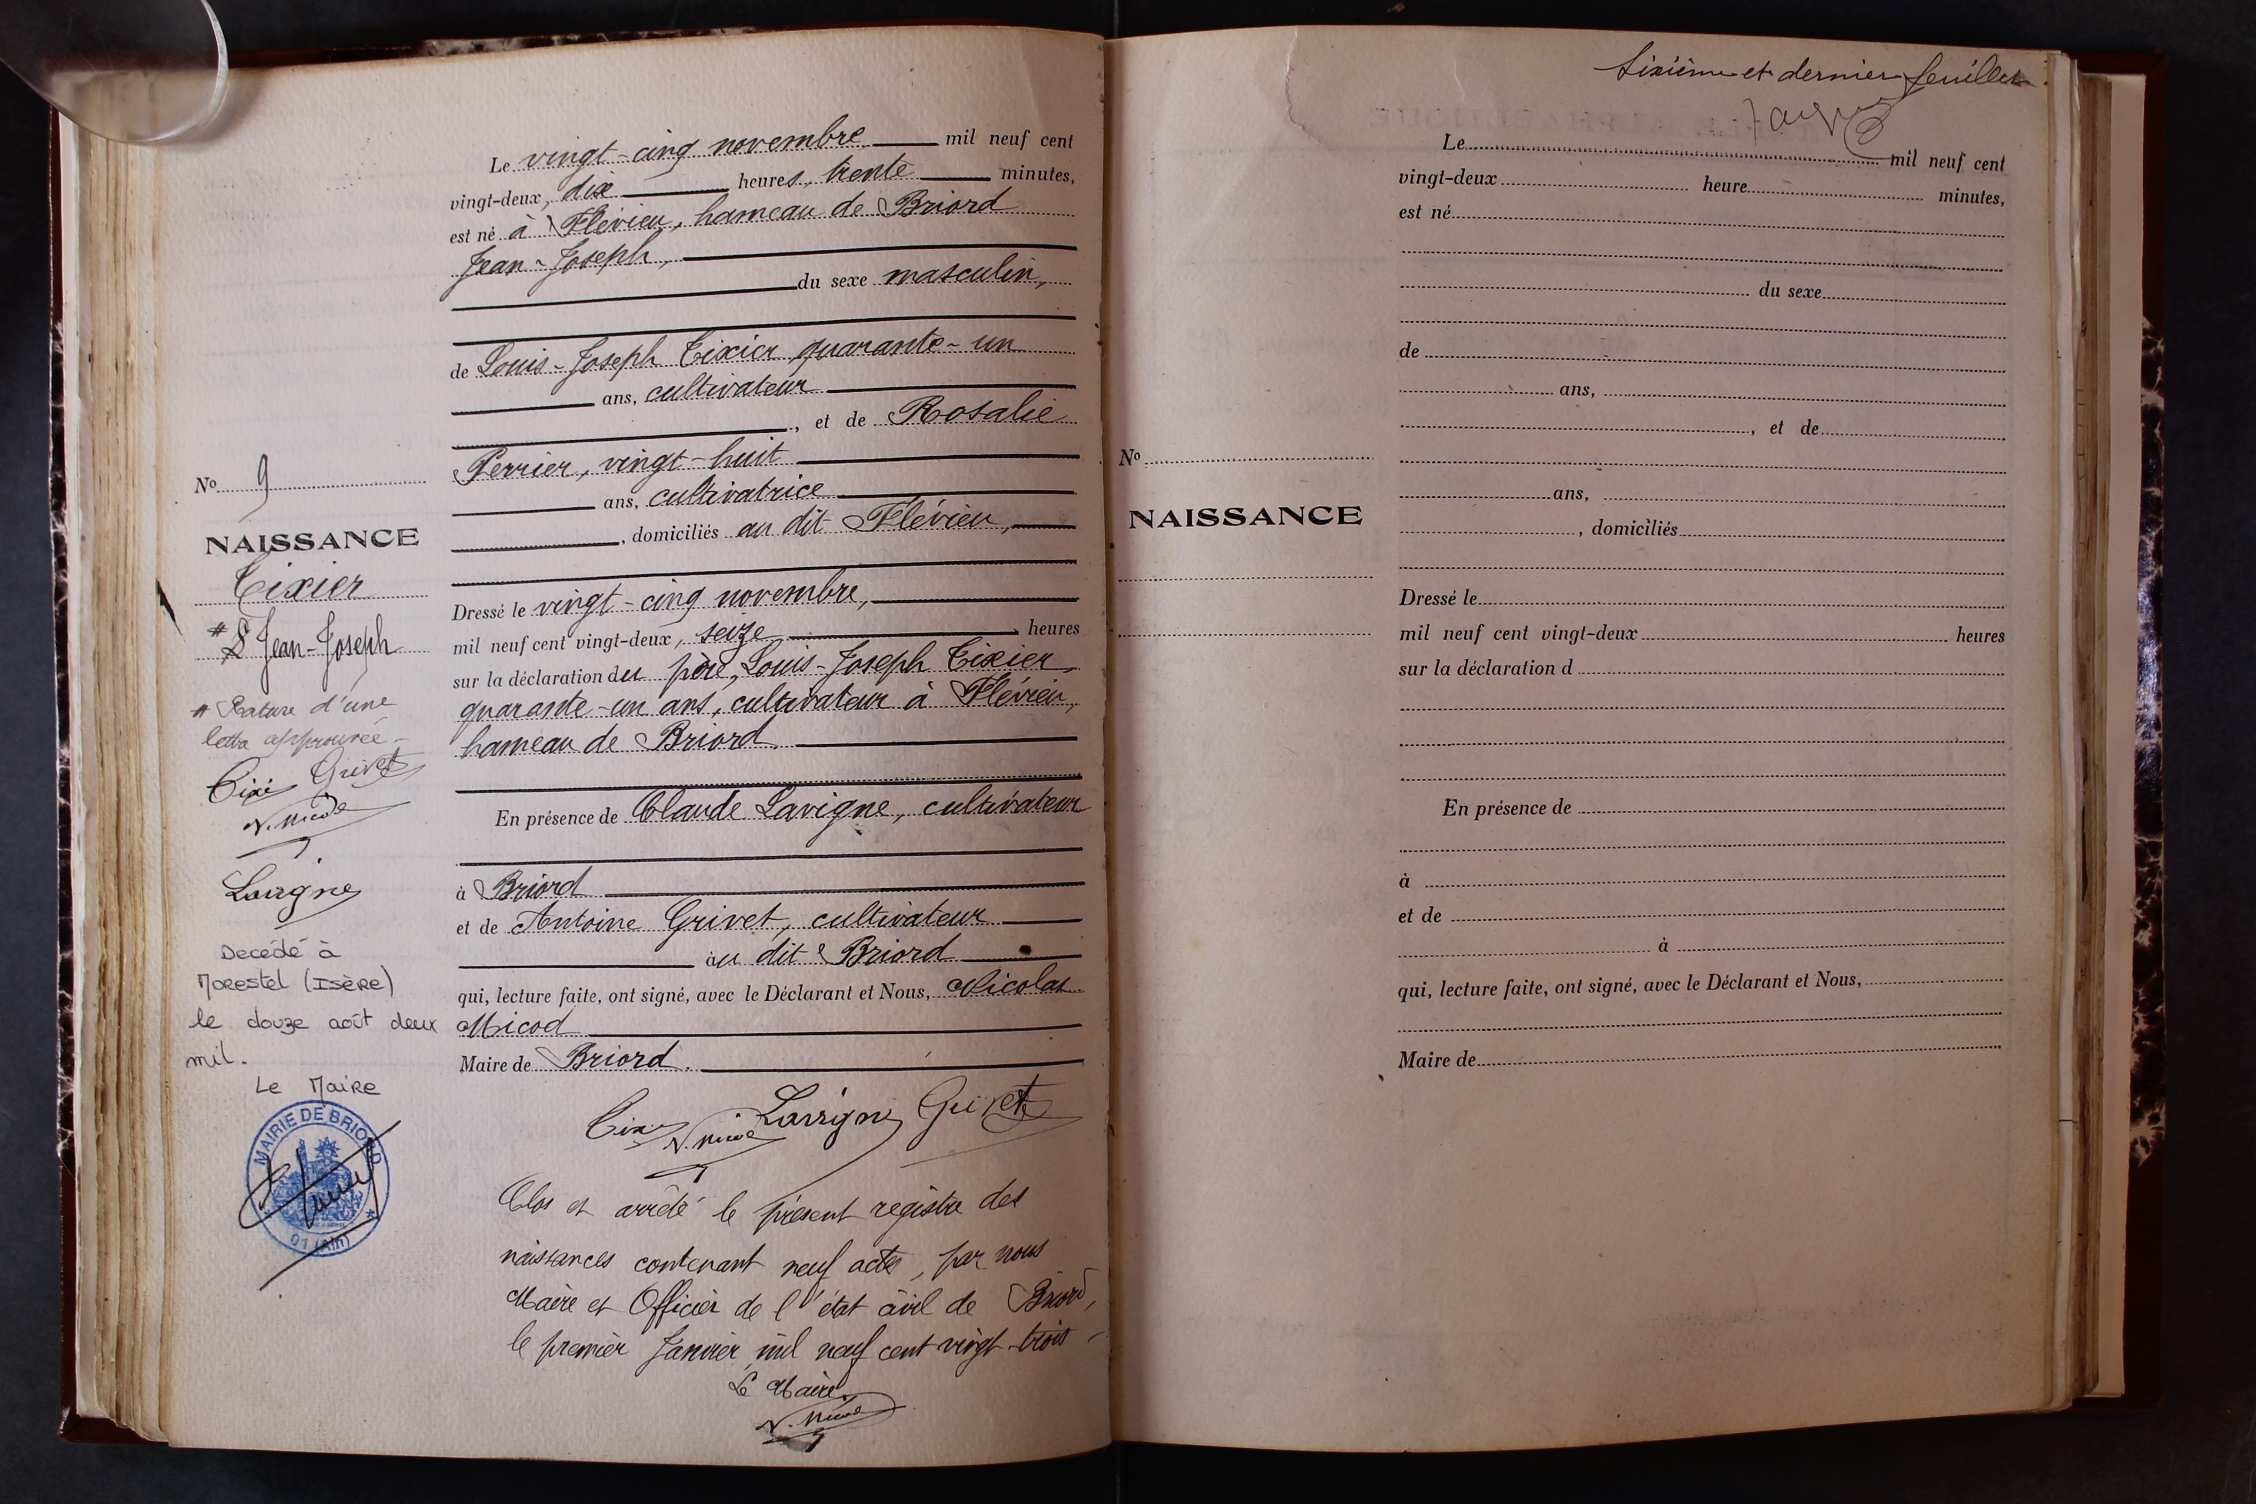 Le vingt-cinq novembre mil neuf cent
vingt-deux, dix heures, trente minutes,
est né à Flévieu, hameau de Briord
Jean-Joseph,
du sexe masculin,
de Louis-Joseph Tixier quarante-un
ans, cultivateur
, et de Rosalie
Perrier, vingt-huit
ans, cultivatrice
, domiciliés au dit Flévieu,
Dressé le vingt-cinq novembre,
mil neuf cent vingt-deux, seize heures
sur la déclaration du père, Louis-Joseph Tixier,
quarante-un ans, cultivateur à Flévieu,
hameau de Briord.
En présence de Claude Lavigne, cultivateur
à Briord
et de Antoine Grivet, cultivateur
au dit Briord
qui, lecture faite, ont signé, avec le Déclarant et Nous, Nicolas
Micod
Maire de Briord.
Tixier N. Micod Lavigne Grivet
Clos et arrêté le présent registre des
naissances contenant neuf actes, par nous
Maire et Officier de l'état civil de Briord,
le premier Janvier mil neuf cent vingt-trois
Le Maire
N. Micod
No 9
NAISSANCE
Tixier
# Jean-Joseph
# Rature d'une
lettre approuvée -
Tixier Grivet
N. Micod
Lavigne
Decédé à
Morestel (Isère)
le douze août deux
mil.
Le Maire
MAIRIE DE BRIORD
01 (Ain)
Sixième et dernier feuillet
Le mil neuf cent
vingt-deux heure minutes,
est né
du sexe
de
ans,
, et de
No
ans,
NAISSANCE
, domiciliés
Dressé le
mil neuf cent vingt-deux heures
sur la déclaration d
En présence de
à
et de
à
qui, lecture faite, ont signé, avec le Déclarant et Nous,
Maire de